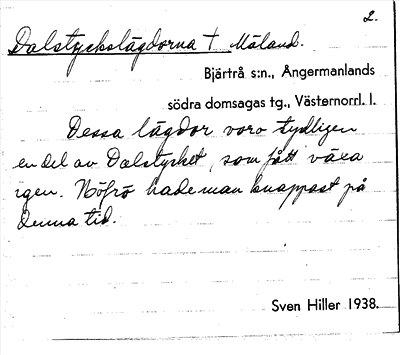 2.
Dalstyckslägdorna † Måland.
Bjärtrå s:n., Ångermanlands
södra domsagas tg., Västernorrl. l.
Dessa lägdor voro tydligen
en del av Dalstycket, som fått växa
igen. Höfrö hade man knappast på
denna tid.
Sven Hiller 1938.